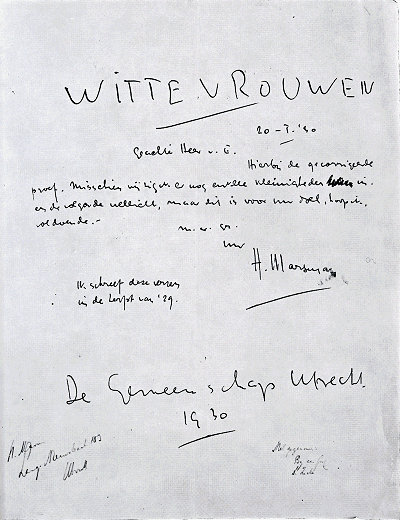 WITTE VROUWEN
20 - I. '30
Geachte Heer v. E.
Hierbij de gecorrigeerde
proef. Misschien wijzig ik er nog enkele kleinigheden in.
en de volgorde wellicht, maar dit is voor uw doel, hoop ik,
voldoende. -
m. v. gr.
uw
H. Marsman
Ik schreef deze verzen
in de herfst van '29.
De Gemeenschap Utrecht.
1930